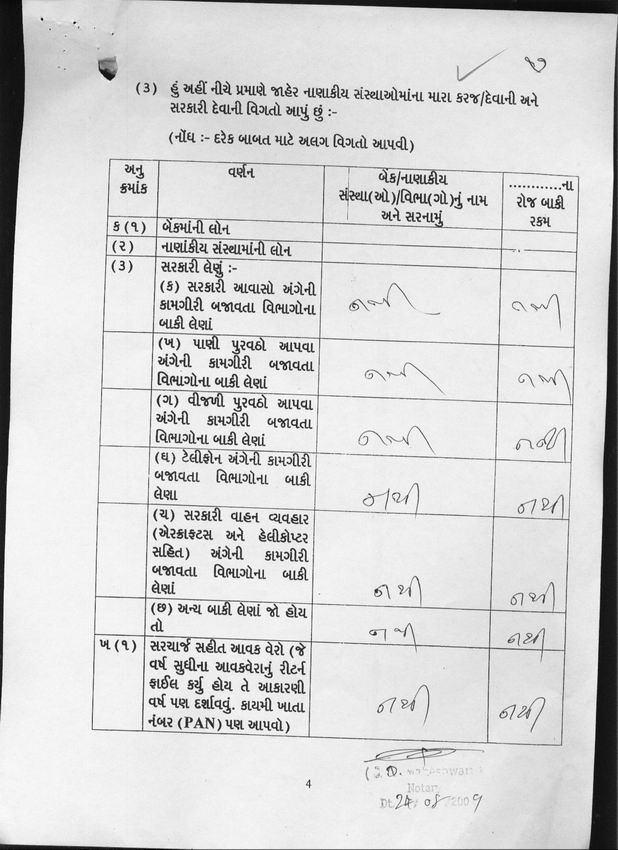 (3) હું અહીં નીચે પ્રમાણે જાહેર નાણાકીય સંસ્થાઓમાંના મારા કરજ/દેવાની અને
સરકારી દેવાની વિગતો આપું છું :-
(નોંધ :- દરેક બાબત માટે અલગ વિગતો આપવી)
અનુ ક્રમાંક
વર્ણન
બેંક/નાણાકીય
સંસ્થા(ઓ)/વિભા(ગો)નું નામ
અને સરનામું
............ના
રોજ બાકી
રકમ
ક (૧) બેંકમાંની લોન
(૨) નાણાંકીય સંસ્થામાંની લોન
(3) સરકારી લેણું :-
(ક) સરકારી આવાસો અંગેની
કામગીરી બજાવતા વિભાગોના
બાકી લેણાં
નથી નથી
(ખ) પાણી પુરવઠો આપવા
અંગેની કામગીરી બજાવતા
વિભાગોના બાકી લેણાં
નથી નથી
(ગ) વીજળી પુરવઠો આપવા
અંગેની કામગીરી બજાવતા
વિભાગોના બાકી લેણાં
નથી નથી
(ઘ) ટેલીફોન અંગેની કામગીરી
બજાવતા વિભાગોના બાકી
લેણા
નથી નથી
(ચ) સરકારી વાહન વ્યવહાર
(એરક્રાફટસ અને હેલીકોપ્ટર
સહિત) અંગેની કામગીરી
બજાવતા વિભાગોના બાકી
લેણાં
નથી નથી
(છ) અન્ય બાકી લેણાં જો હોય
તો
નથી નથી
ખ (૧) સરચાર્જ સહીત આવક વેરો (જે
વર્ષ સુધીના આવકવેરાનું રીટર્ન
ફાઈલ કર્યુ હોય તે આકારણી
વર્ષ પણ દર્શાવવું. કાયમી ખાતા
નંબર (PAN) પણ આપવો)
નથી નથી
4
Notary
Dt. 24/08/2009